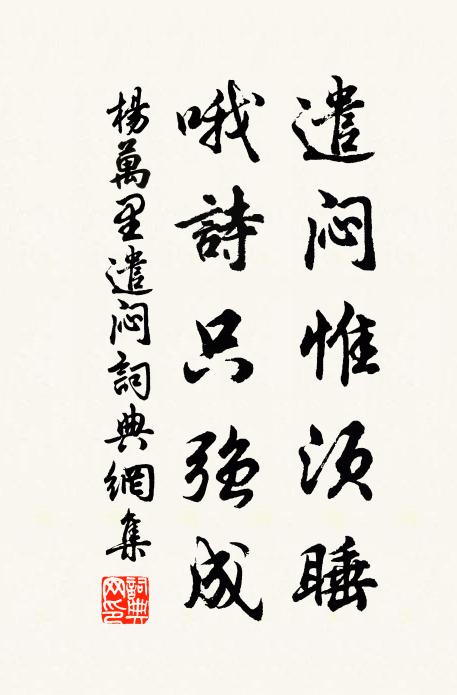 遣闷惟须睡
哦詩只強成
楊萬里遣闷詞典網集
詞典
网印